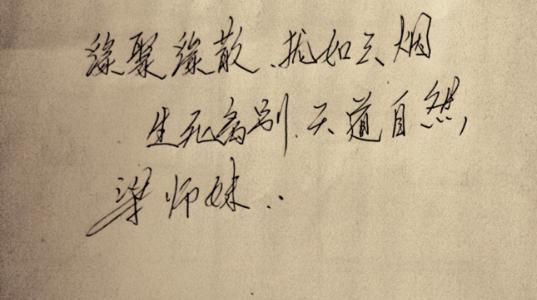 缘聚缘散、犹如云烟
生死离别、天道自然，
梁师妹..